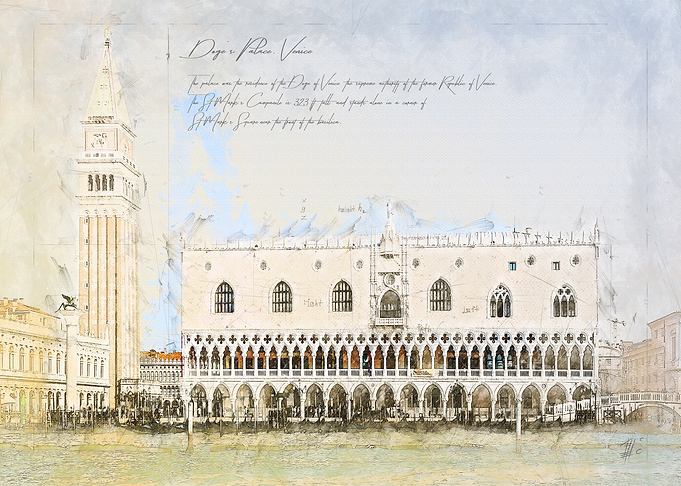 Doge's Palace, Venice
The palace was the residence of the Doge of Venice the supreme authority of the former Republic of Venice.
The St Mark's Campanile is 323 ft tall and stands alone in a corner of
St Mark's Square near the front of the basilica.
height h